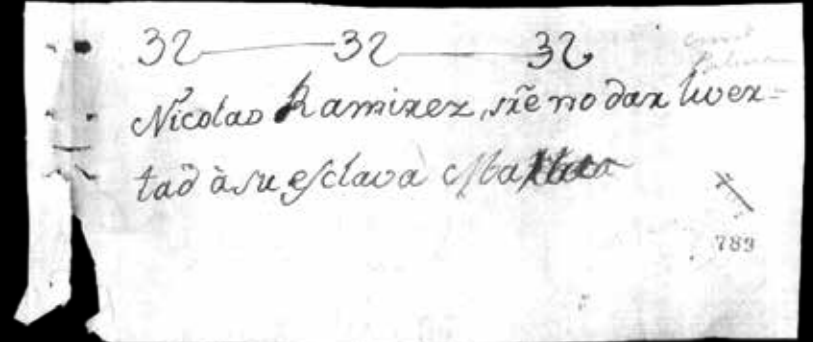 32 32 32
Nicolas Ramirez, sr̃e no dar liver-
tad à su esclava
789